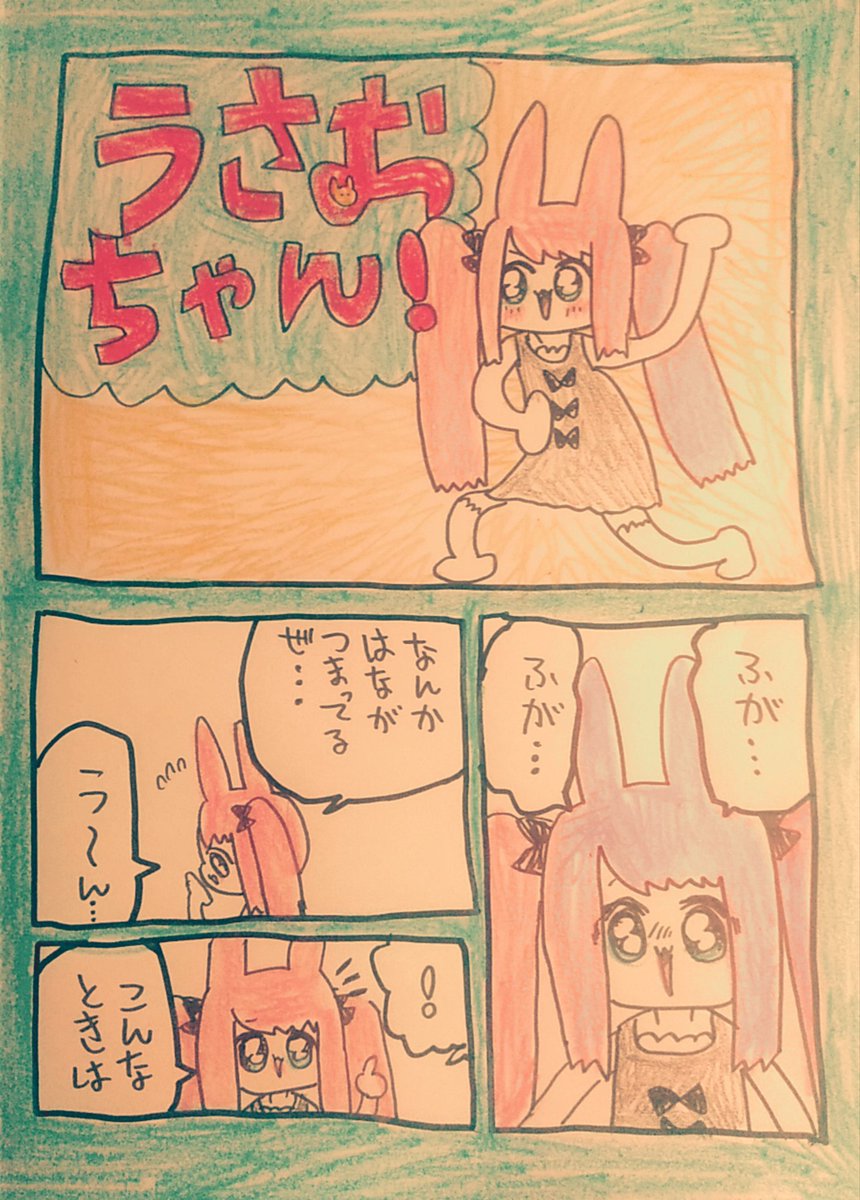 うさむ
ちゃん!
ふが…
ふが…
なんか
はなが
つまってる
ぜ…
う〜ん…
!
こんな
ときは